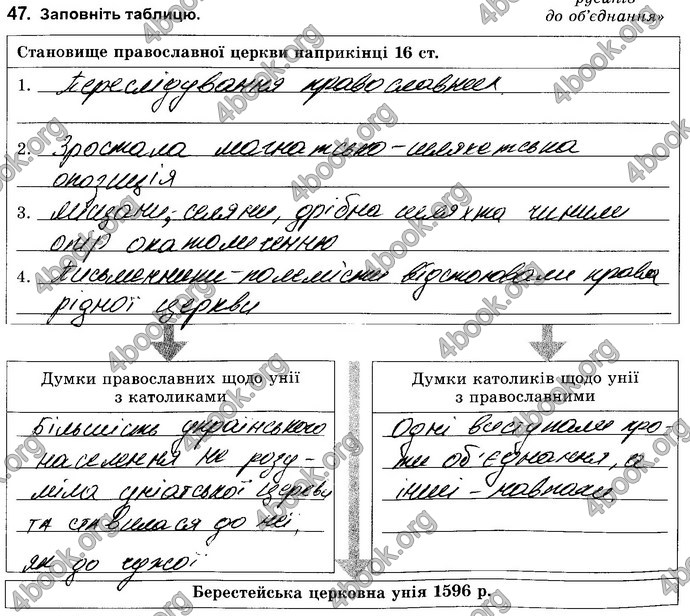 русинів
47. Заповніть таблицю.
до об'єднання»
Становище православної церкви наприкінці 16 ст.
1. Переслідування православних
2. Зростала магнатсько-шляхетська
опозиція
3. Міщани, селяни, дрібна шляхта чинили
опір окатоличенню
4. Письменники-полемісти відстоювали права
рідної церкви
Думки православних щодо унії
з католиками
Більшість українського
населення не розу-
міла уніатської церкви
та ставилася до неї,
як до чужої
Думки католиків щодо унії
з православними
Одні виступали про-
ти об'єднання, а
інші - навпаки
Берестейська церковна унія 1596 р.
4book.org